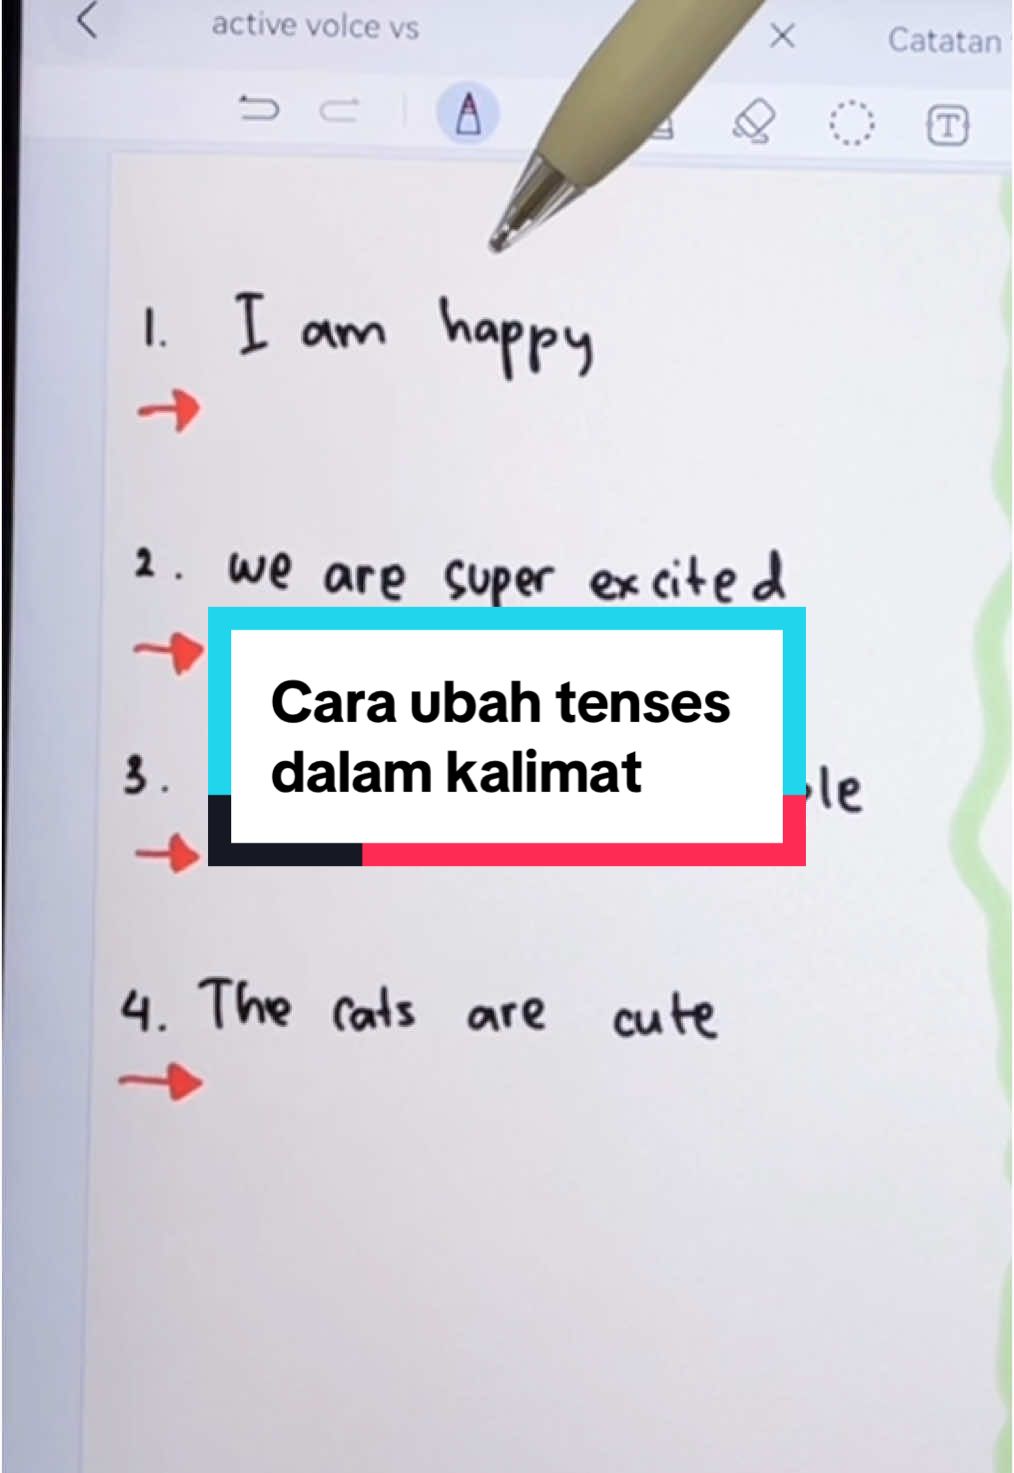 active voice vs
Catatan
T
1. I am happy
2. we are super excited
Cara ubah tenses
dalam kalimat
3.
4. The cats are cute